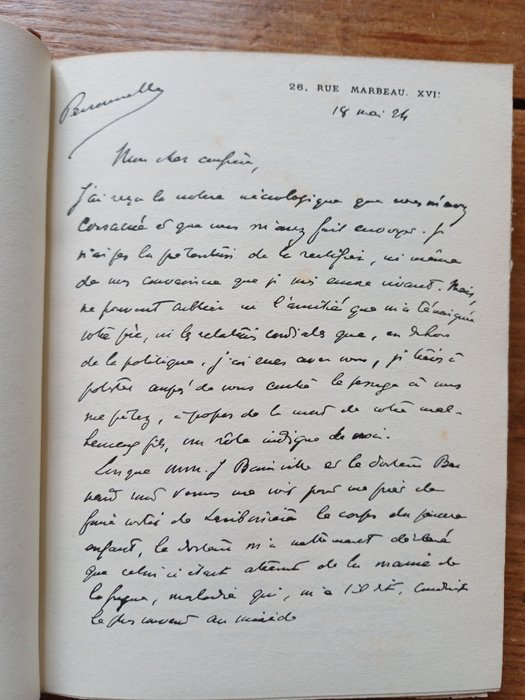 26, RUE MARBEAU. XVIᵉ
18 mai 24
Personnelle
Mon cher confrère,
J'ai reçu la notice nécrologique que vous m'avez
consacrée et que vous m'avez fait envoyer. Je
n'ai pas la prétention de la rectifier, ni même
de vous convaincre que je suis encore vivant. Mais,
ne pouvant oublier ni l'amitié que m'a témoignée
votre père, ni les relations cordiales que, en dehors
de la politique, j'ai eues avec vous, je tiens à
protester auprès de vous contre le passage où vous
me prêtez, à propos de la mort de votre mal-
heureux fils, un rôle indigne de moi.
Lorsque MM. J Bainville et le docteur Ber
nard sont venus me voir pour me prier de
faire sortir de Lariboisière le corps du pauvre
enfant, le docteur m'a nettement déclaré
que celui-ci était atteint de la manie de
la fugue, maladie qui, m'a t'il dit, conduit
le plus souvent au suicide